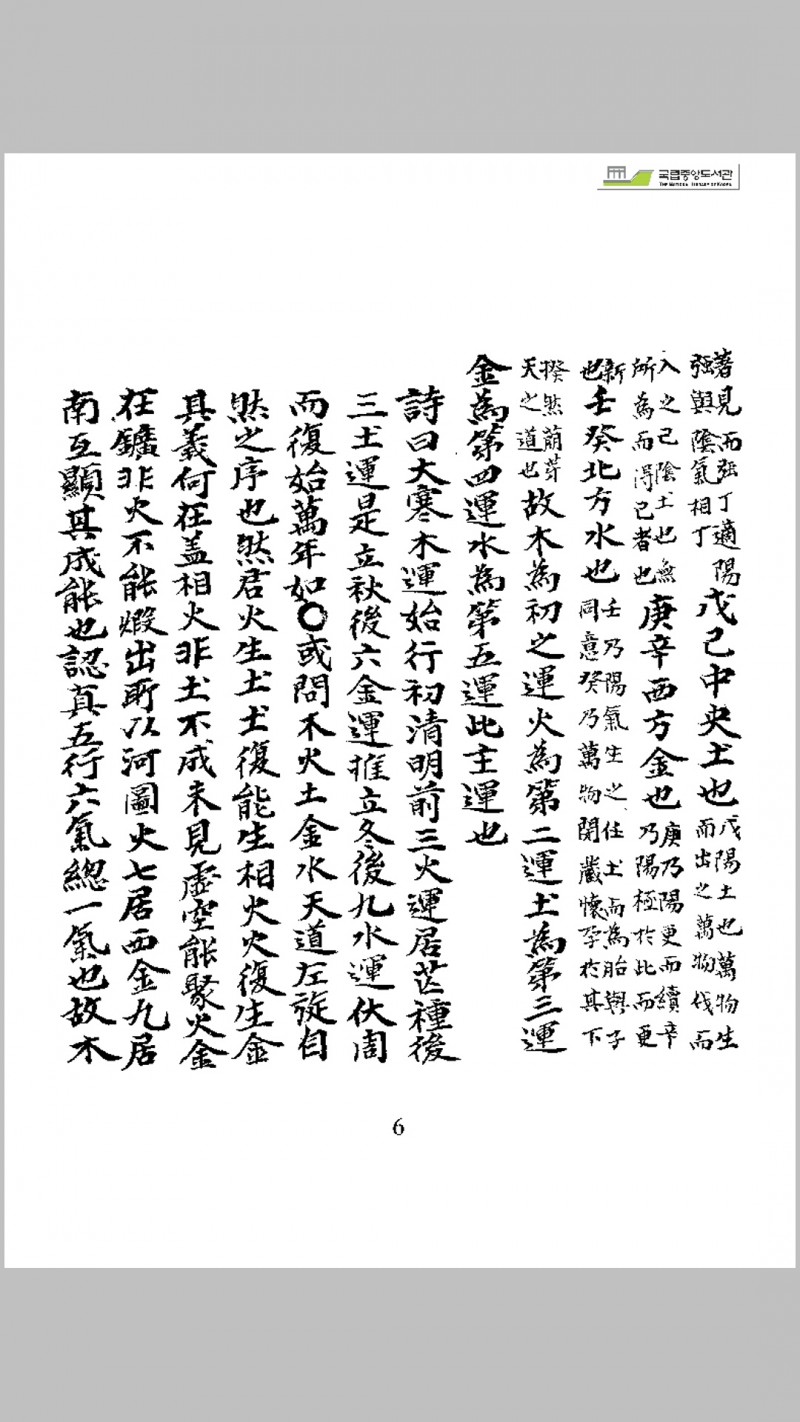 국립중앙도서관
THE NATIONAL LIBRARY OF KOREA
著見而強丁適陽強與陰氣相丁戊己中央土也戊陽土也萬物生而出之萬物伐而
入之己陰土也無所為而得己者也庚辛西方金也庚乃陽更而續辛乃陽極於此而更
新也壬癸北方水也壬乃陽氣生之任士而為胎與子同意癸乃萬物閉藏懷孕於其下
揆然萌芽天之道也故木為初之運火為第二運土為第三運
金為第四運水為第五運此主運也
詩曰大寒木運始行初清明前三火運居芒種後
三土運是立秋後六金運推立冬後九水運伏周
而復始萬年如〇或問木火土金水天道左旋自
然之序也然君火生土土復能生相火火復生金
其義何在盖相火非土不成未見虛空能聚火金
在鑛非火不能煆出所以河圖火七居西金九居
南互顯其成能也認真五行六氣總一氣也故木
6